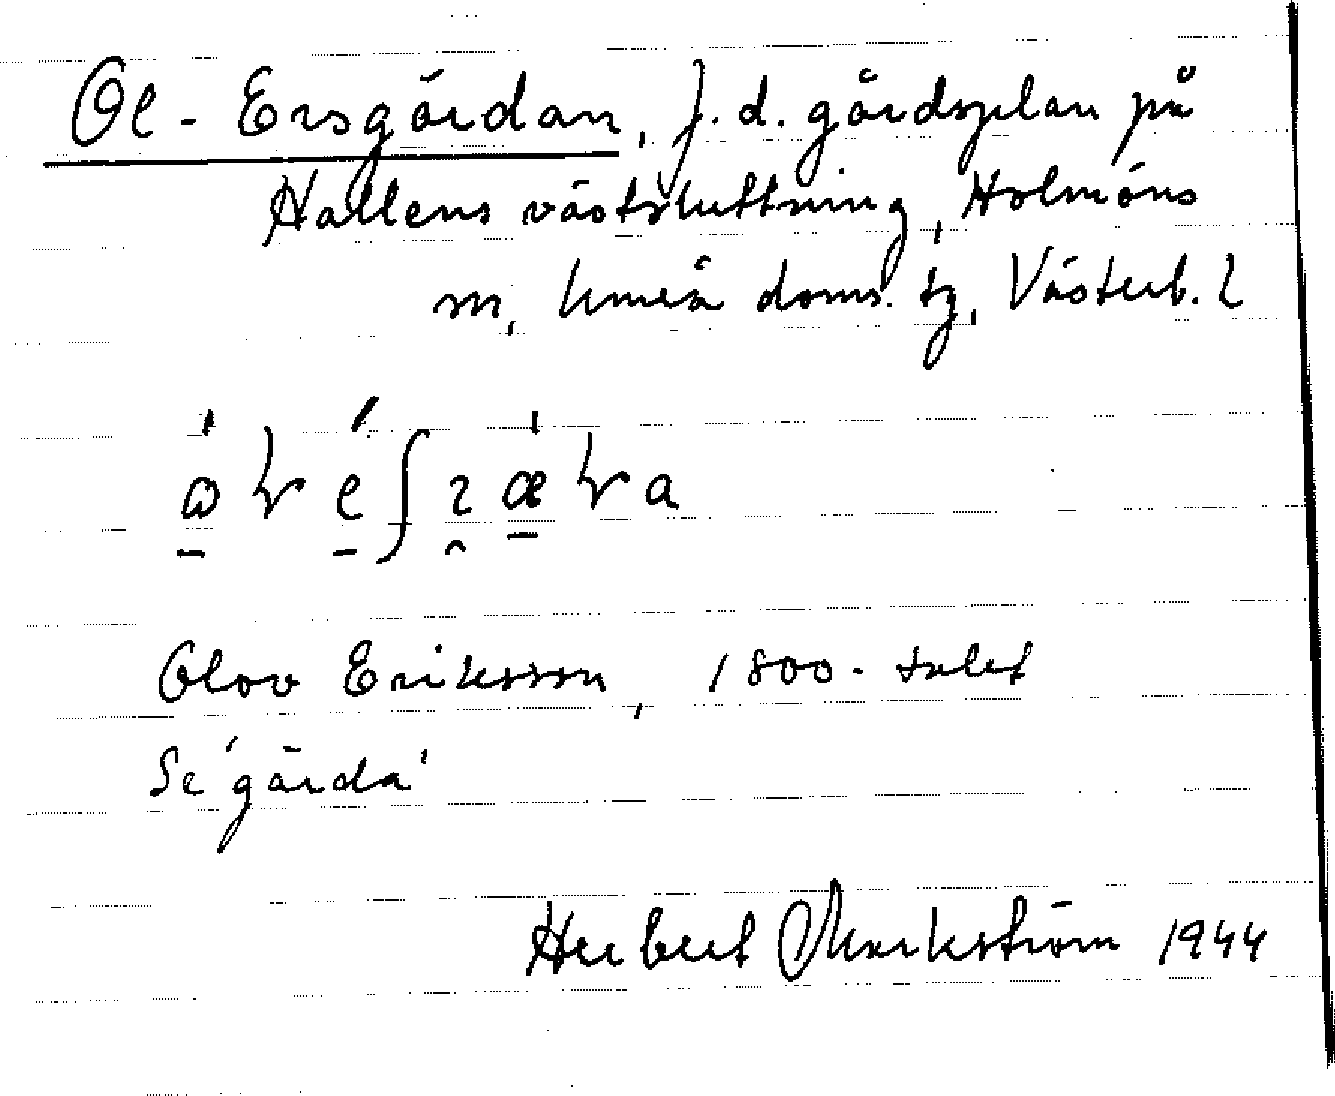 Ol-Ersgårdan, f.d. gårdsplan på
Hallens västsluttning, Holmöns
sn, Umeå doms. tg, Västerb. l
Olov Eriksson, 1800-talet
Se 'gårda'
Herbert Markström 1944